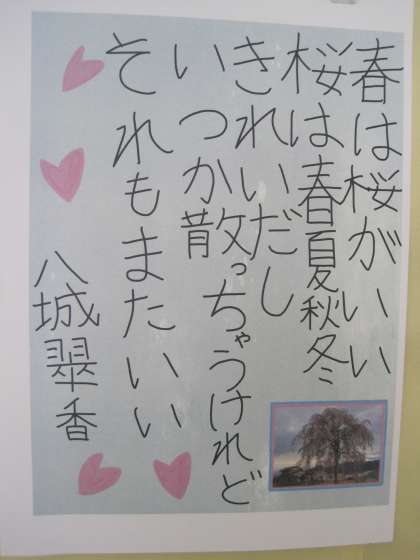 春は桜がいい
桜は春夏秋冬
きれいだし
いつか散っちゃうけれど
それもまたいい
八城翠香